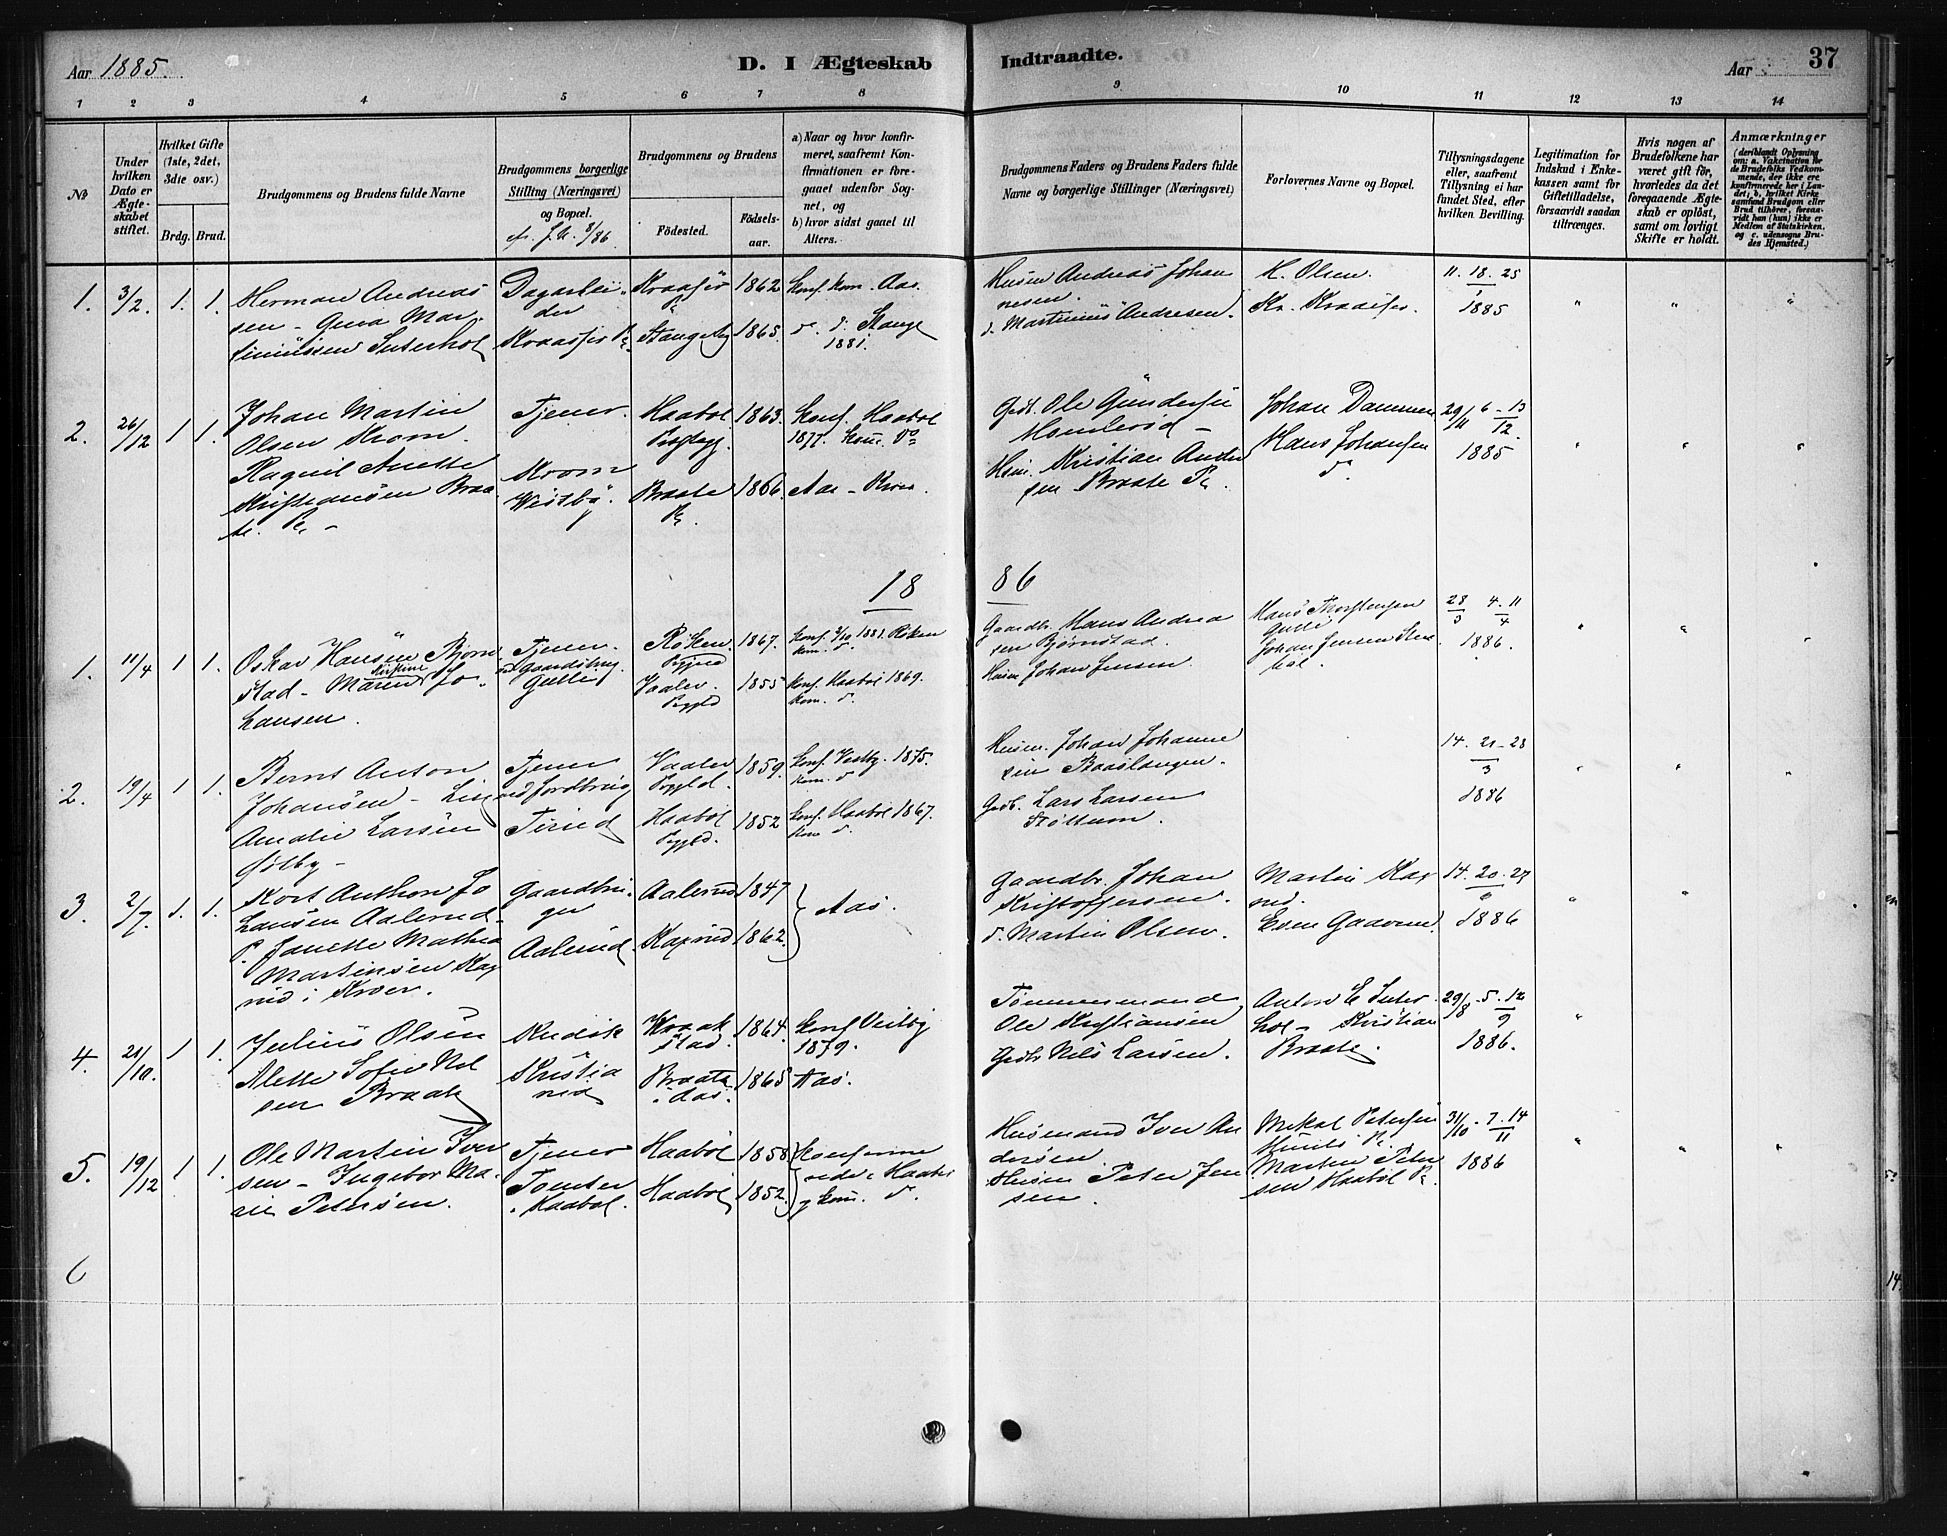 Aar 1885.
D. I Ægteskab
Indtraadte.
37
Aar
1 2 3 4 5 6 7 8 9 10 11 12 13 14
№
Under hvilken Dato er Ægteskabet stiftet.
Hvilket Gifte (1ste, 2det, 3die osv.)
Brdg. Brud.
Brudgommens og Brudens fulde Navne
Brudgommens borgerlige Stilling (Næringsvei) og Bopæl.
Brudgommens og Brudens
Fødested.
Fødselsaar.
a) Naar og hvor konfirmeret, saafremt Konfirmationen er foregaaet udenfor Sognet, og
b) hvor sidst gaaet til Alters.
Brudgommens Faders og Brudens Faders fulde Navne og borgerlige Stillinger (Næringsvei)
Forlovernes Navne og Bopæl.
Tillysningsdagene eller, saafremt Tillysning ei har fundet Sted, efter hvilken Bevilling.
Legitimation for Indskud i Enkekassen samt for Giftetilladelse, forsaavidt saadan tiltrænges.
Hvis nogen af Brudefolkene har været gift før, hvorledes da det foregaaende Ægteskab er opløst, samt om lovligt Skifte er holdt.
Anmærkninger
(deriblandt Oplysning om: a. Vakcination for de Brudefolks Vedkommende, der ikke ere konfirmerede her i Landet; b. hvilket Kirkesamfund Brudgom eller Brud tilhører, forsaavidt han (hun) ikke er Medlem af Statskirken, og c. udensogns Brudes Hjemsted.)
1. 3/2. 1. 1.
Herman Andreas
sen - Gina Mar
tiniussen Suterhol
Dagarbei
der
Kraasfér
1862
1863
Konf. Kom. Aas.
d. d. Stange
1881.
Husm Andreas Johan
nesen.
d. Martinius Andresen.
H. Olsen.
11. 18. 25
1
1885
2. 26/12 1 1.
Johan Martin
Olsen Krom.
Ragnil Anette
Kristiansen Braa
te.
Tjener.
Krom
Westby.
Haabøl
Præstegj.
Braate
1863.
1866.
Konf. Haabøl
1877. Kom. do
Aas - Kroer.
Gdb. Ole Gundersen
Husm. Kristian Ander
sen Braate
Johan Dammen
Hans Johansen
d.
29/11 6 - 13
12.
1885
18 86
1. 11/4 1 1.
Oskar Hansen Bjørn
stad - Maren Kristine Jo
hansen.
Tjener
Røken
Vaaler.
1867.
1855
Konf. 2/10 1881. Røken
Kom. d.
Konf. Haabøl 1869.
Kom. d.
Gaardbr. Hans Andrea
sen Bjørnstad.
Husm Johan Jensen.
Hans Thorstensen
Johan Jensen
28/3 4. 11
4
1886.
2. 19/4 1 1.
Bernt Anton
Johansen - Lise
Amalie Larsen
Tjener
Vaaler
Haabøl
1859.
1852
Konf. Vestby. 1875.
Kom. d
Konf. Haabøl 1867.
Kom d.
Husm. Johan Johanne
sen
Gdb. Lars Larsen
14. 21 - 28
3
1886
3. 2/7. 1. 1.
Kort Anthon Jo
hansen Aalerud
P. Janette Mathea
Martinsen Kax
rud i Kroer.
Gaardbru
ger
Aalerud.
Aalerud
Kaxrud
1847
1862.
Aas.
Gaardbr. Johan
Kristoffersen.
d. Martin Olsen.
Martin Kax
rud.
Even Gaarud.
14. 20. 27
6
1886
4. 21/10. 1 1.
Julius Olsen
Alette Sofie Nel
sen Braate
Kudsk
Kristia
nia
Kraak
stad.
Braate
i Aas.
1864.
1865
Konf Vestby
1879.
Aas.
Tømmermand
Ole Kristiansen
Gdbr Nils Larsen.
Anton E Suter
hol - Kristian
Braate.
29/8. 5. 12
9
1886.
5. 19/12 1 1.
Ole Martin Iver
sen - Ingebor Ma
rie Petersen.
Tjener
Tomter
i Haabøl.
Haabøl
Haabøl
1858
1852
Konfirme
rede i Haabøl
og Kom. d.
Husmand Iver An
dersen
Husm Peter Jen
sen.
Mikal Petersen
Martin Peter
sen Haabøl
31/10. 7. 14
11
1886
6